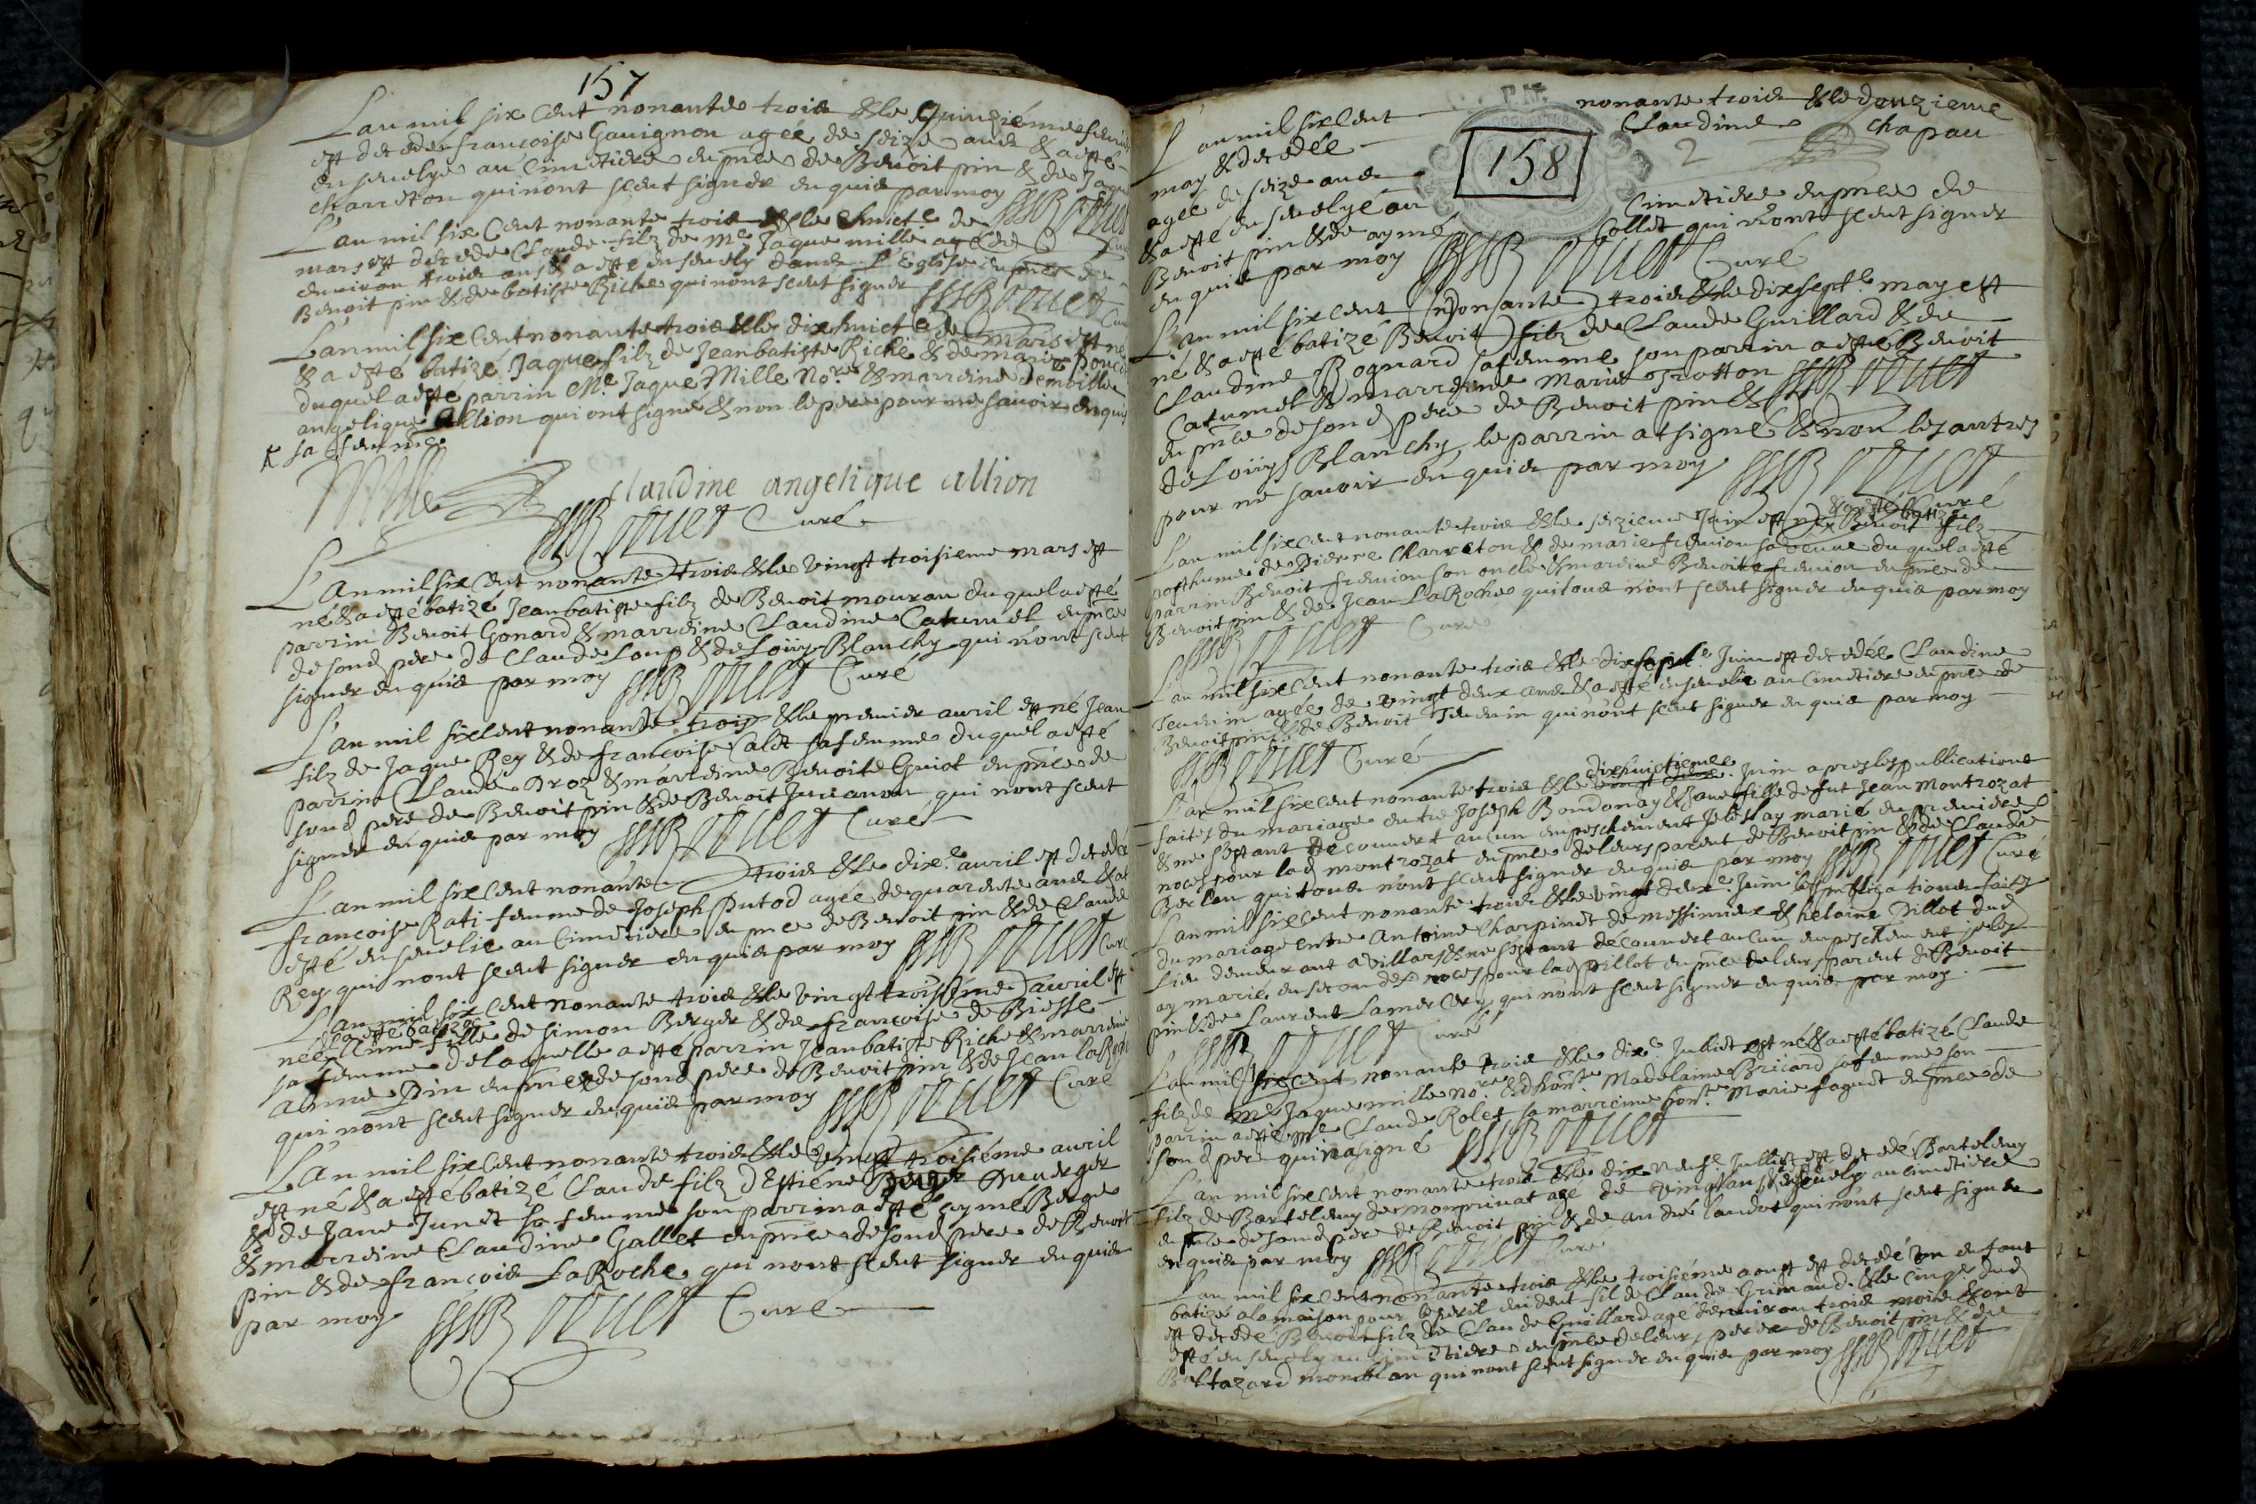 157
L'an mil six Cent nonante trois & le Quinziéme
est decedée francoise Gavignon agée de seize ans & a esté
ensevelye au Cimetiere en pnce de Benoit pin & de Jaque
charreton qui n'ont sceut signer enquis par moy
Curé
L'an mil six Cent nonante trois & le huict.e de
mars est decede Claude filz de M.e Jaque mille agé de
environ trois ans & a esté ensevely dans l'Eglise en pnce de
Benoit pin & de batiste Riche qui n'ont sceut signer
L'an mil six Cent nonante trois & le dix huict.e de mars est né
& a esté batizé Jaque filz de Jean batiste Riche & de marie
duquel a esté parrin M.e Jaque Mille No.re & marreine
angelique allion qui ont signé & non le pere pour ne savoir enquis
sa femme
Mille
Claudine angelique allion
Curé
L'An mil six Cent nonante trois & le vingt troisieme mars est
né & a esté batizé Jean batiste filz de Benoit mouran duquel a esté
parrin Benoit Gonard & marreine Claudine Catumel en pnce
de sond pere de Claude Loup & de Loüys Blanchy qui n'ont sceut
signer enquis par moy Curé
L'an mil six Cent nonante trois & le premier avril est né Jean
filz de Jaque Rey & de francoise Calet sa femme duquel a esté
parrin Claude Droz & marreine Benoite Guiot en pnce de
sond pere de Benoit pin & de Benoit Juvanon qui n'ont sceut
signer enquis par moy Curé
L'an mil six Cent nonante trois & le dix.e avril est decedée
francoise Rati femme de Joseph Putod agée de quarante ans & a
esté ensevelie au Cimetiere en pnce de Benoit pin & de Claude
Rey qui n'ont sceut signer enquis par moy Curé
L'an mil six Cent nonante trois & le vingt troisiéme avril est
& a esté batizée
née Anne fille de Simon Berger & de francoise de Biesse
sa femme de laquelle a esté parrin Jean batiste Riche & marreine
Anne Pin en pnce de sond pere de Benoit pin & de Jean la Roche
qui n'ont sceut signer enquis par moy Curé
L'An mil six Cent nonante trois & le vingt troisiéme avril
est né & a esté batizé Claude filz d'Estiene Duverger
& de Jane Junet sa femme son parrin a esté aymé Berger
& marreine Claudine Gallet en pnce de sond pere de Benoit
pin & de francois LaRoche qui n'ont sceut signer enquis
par moy Curé
158
2
L'an mil six Cent nonante trois & le douzieme
may & decedée Claudine Chapau
agée de seize ans
& a esté ensevelye au Cimetiere en pnce de
Benoit pin & de aymé Collet qui n'ont sceut signer
enquis par moy Curé
L'an mil six Cent nonante trois & le dix sept.e may est
né & a esté batizé Benoit filz de Claude Guillard & de
Claudine Bognard sa femme son parrin a esté Benoit
Catumel & marreine Marie Trotton
en pnce de sond pere de Benoit pin &
de Loüys Blanchy le parrin a signé & non les autres
pour ne savoir enquis par moy
Curé
L'an mil six Cent nonante trois & le seizieme Juin est né & a esté batizé Benoit filz
posthume de Pierre Charreton & de marie frenion sa veuve duquel a esté
parrin Benoit frenion son oncle & marreine Benoite frenion en pnce de
Benoit pin & de Jean LaRoche qui tous n'ont sceut signer enquis par moy
Curé
L'an mil six Cent nonante trois & le dix sept.e Juin est decedée Claudine
agée de vingt deux ans & a esté ensevelie au Cimetiere en pnce de
Benoit pin & de Benoit qui n'ont sceut signer enquis par moy
Curé
dix huictieme
L'an mil six Cent nonante trois & le Juin apres les publications
faites du mariage entre Joseph Bondonay & Jane fille de fut Jean Montrozat
& ne s'estant decouvert aucun empeschement Je les ay marié en premieres
noces pour lad montrozat en pnce de leurs parent de Benoit pin & de Claude
Berlan qui tous n'ont sceut signer enquis par moy Curé
L'an mil six Cent nonante trois & le vingt deux.e Juin les publications faites
du mariage entre Antoine Charpinet de messimiex & helaine Pillot dud
Lieu demeurant a villars & ne s'estant decouvert aucun empeschement je les
ay marié en secondes noces pour lad pillot en pnce de leurs parent de Benoit
pin & de Laurent Lamercery qui n'ont sceut signer enquis par moy
Curé
L'an mil six Cent nonante trois & le dix.e Julliet est né & a esté batizé Claude
filz de M.e Jaque mille No.re & d'hon.te Madelaine Bricard sa femme son
parrin a esté M.e Claude Rolet sa marreine hon.te Marie faguet en pnce de
sond pere qui n'a signé
L'an mil six Cent nonante trois & le dix neuf.e Julliet est decedé Bartelemy
filz de Bartelemy de monprivat agé de vingt ans & ensevely au cimetiere
en pnce de sond pere de Benoit pin & de andre Landot qui n'ont sceut signer
enquis par moy Curé
L'an mil six Cent nonante trois & le troisiéme aoust est decedé un enfant
batizé a la maison pour le peril evident fil de Claude Grimaud & le cinq.e dud
est decedé Benoit filz de Claude Guillard agé d'environ trois mois & ont
esté ensevely au cimetiere en pnce de leurs peres de Benoit pin & de
Baltazard monblan qui n'ont sceut signer enquis par moy